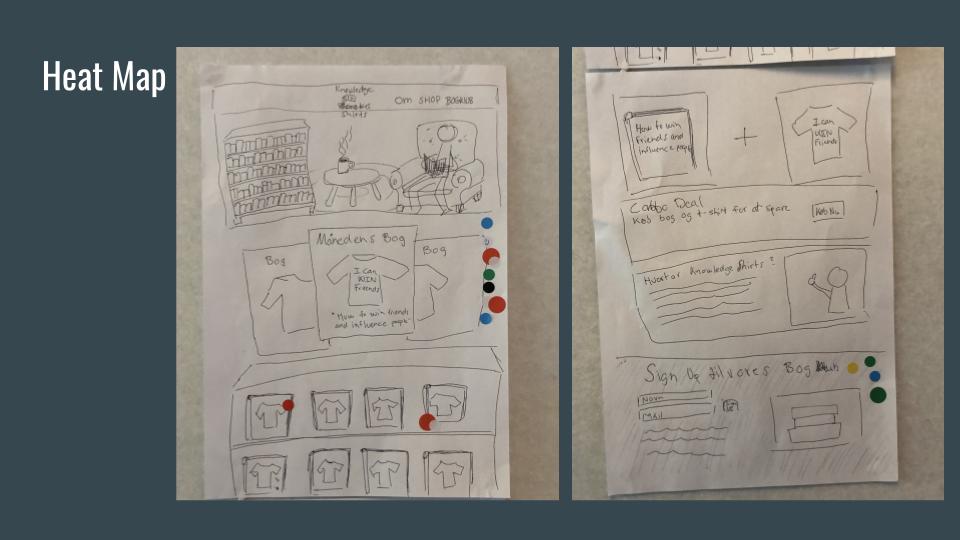 Heat Map
Knowledge
Shirts
Om SHOP BOGKLUB
Månedens Bog
Bog
Bog
I can
WIN
Friends
"How to win friends
and influence people"
How to win
Friends and
influence people
+
I can
WIN
Friends
Combo Deal
Køb bog og t-shirt for at spare
Køb Nu
Hvorfor Knowledge Shirts?
Sign Up til vores Bog
Navn
Mail